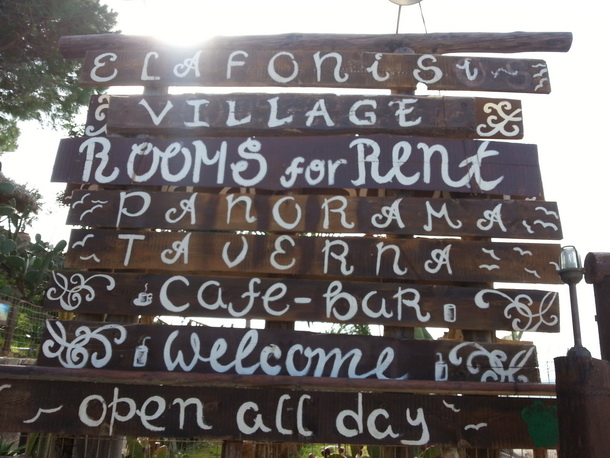 ELAFONiSi
VILLAGE
ROOMS for Rent
PANORAMA
TAVERNA
Cafe-baR
welcome
open all day